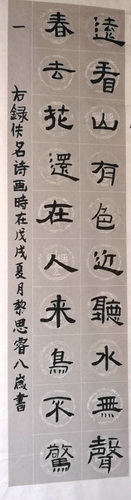 遠看山有色近聽水無聲
春去花還在人来鳥不驚
右録佚名诗画時在戊戌夏月黎思睿八歲書
一